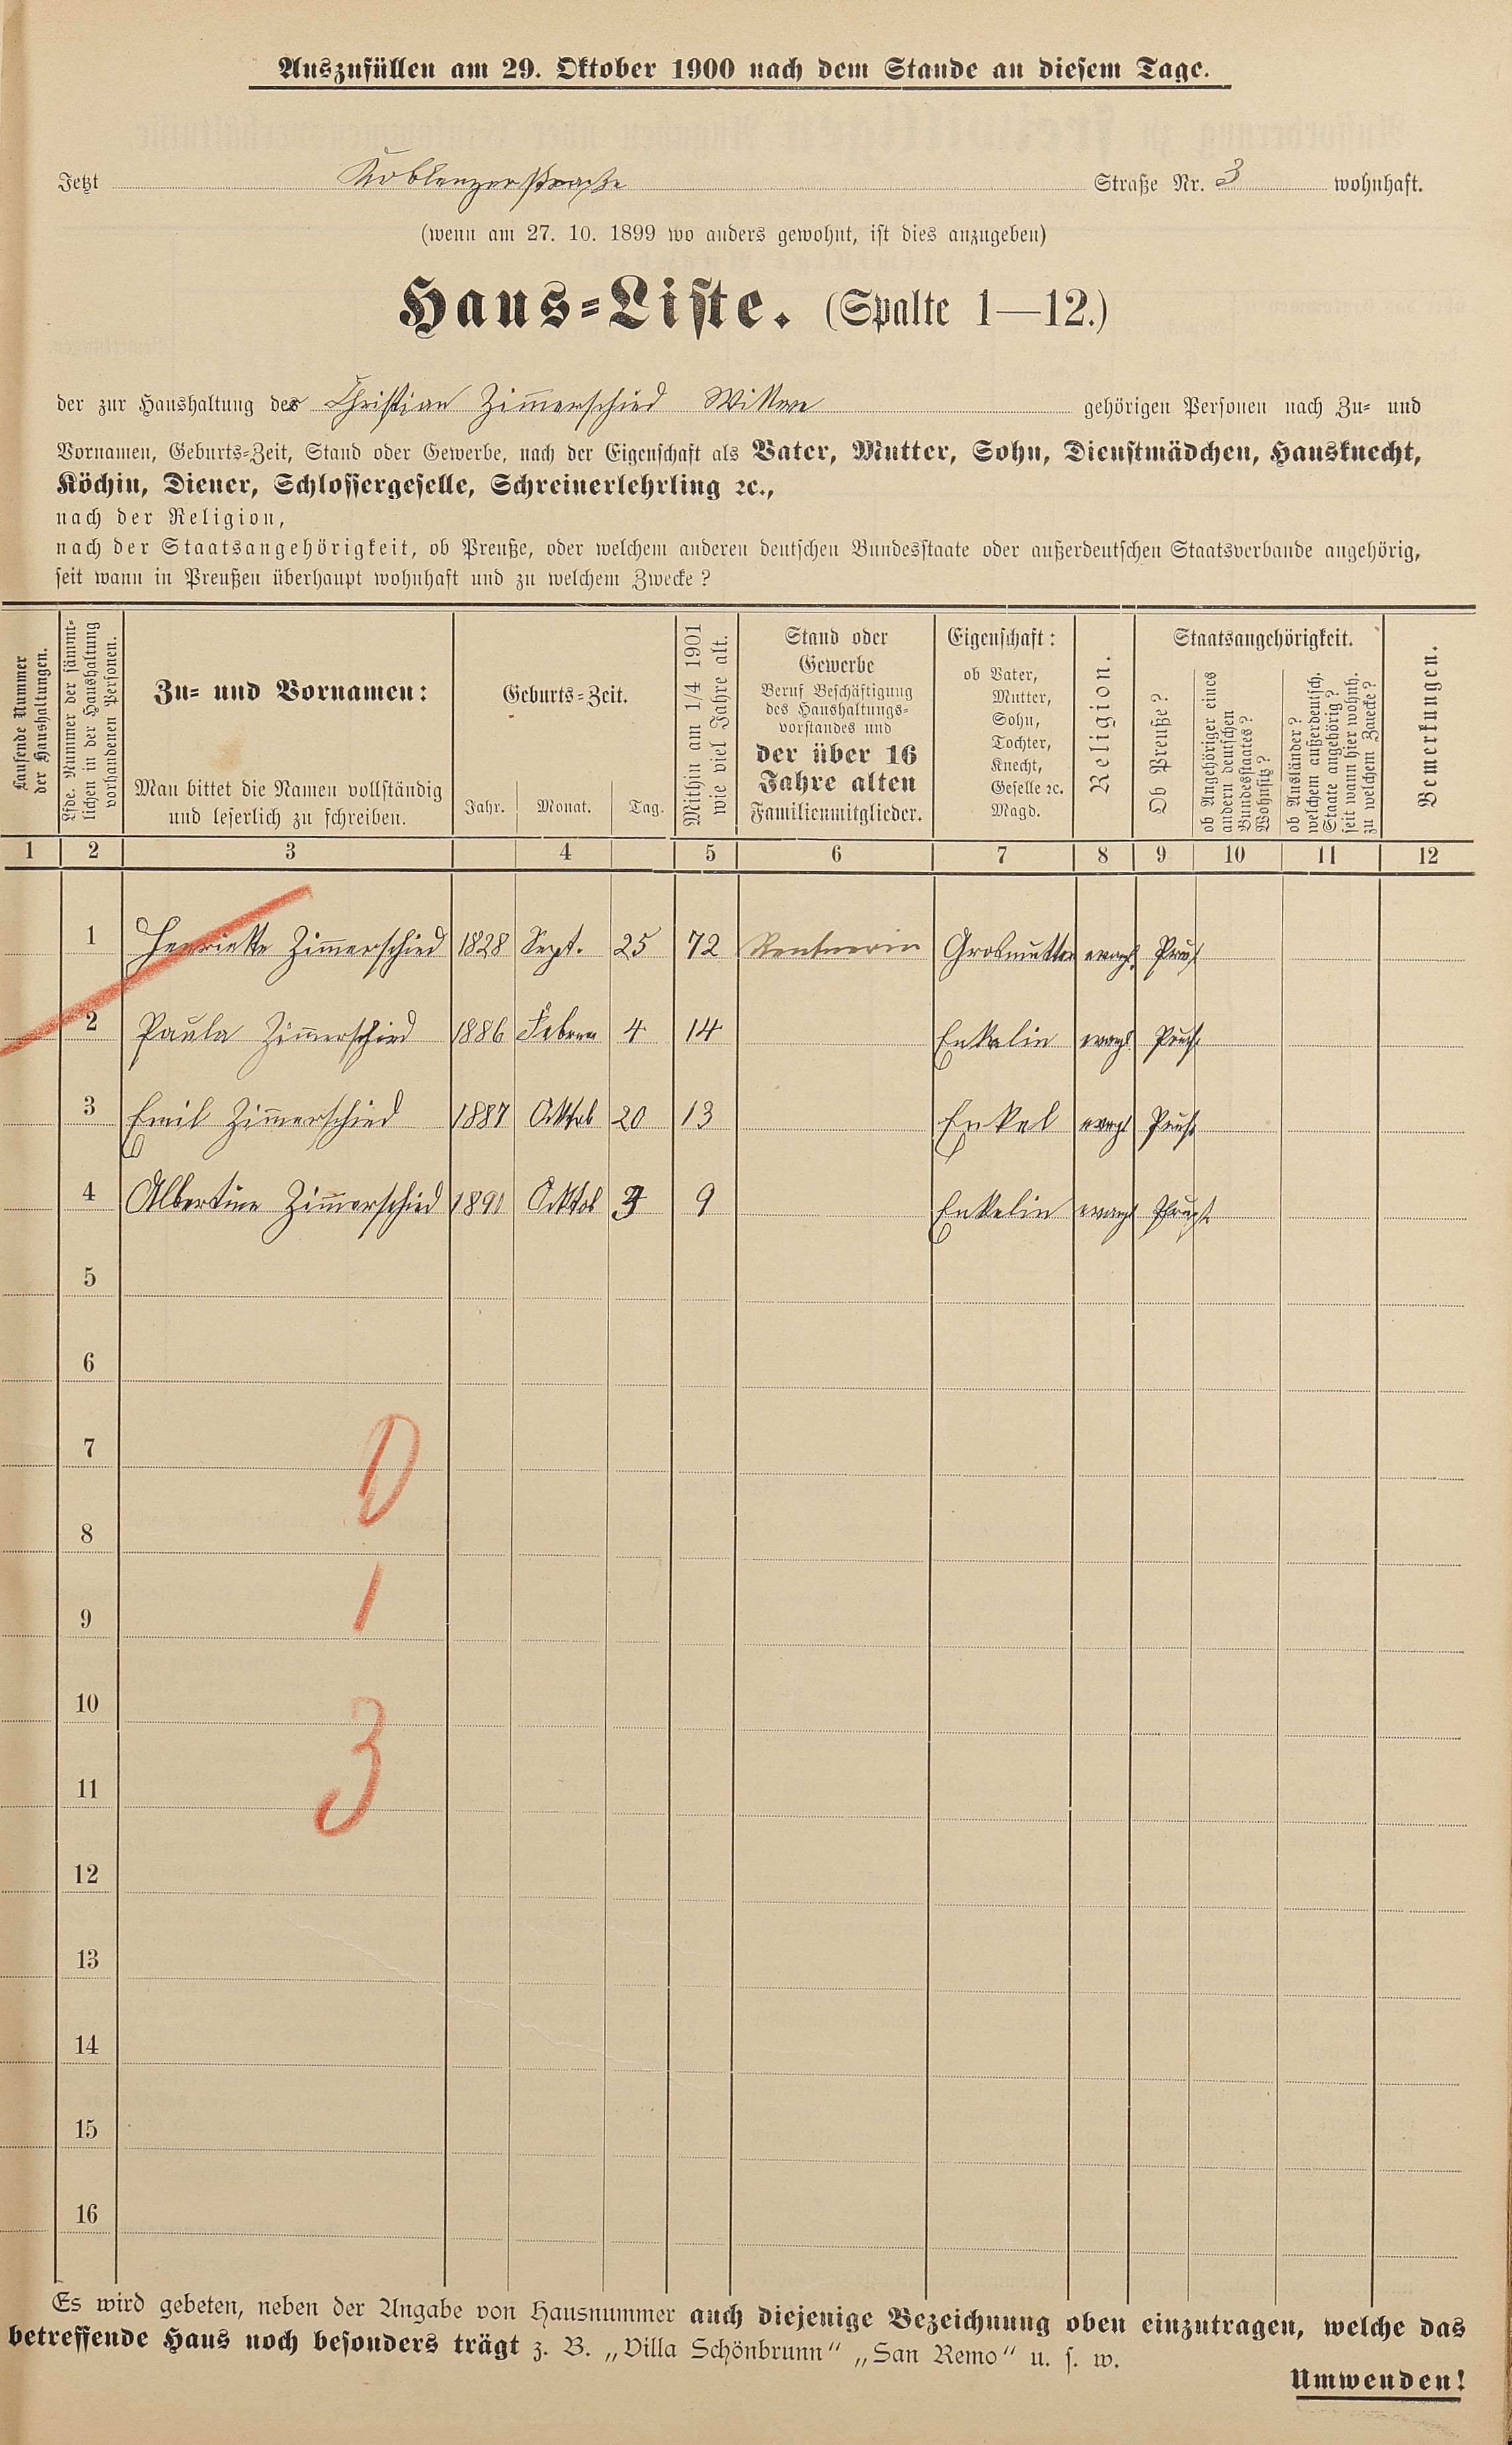 Auszufüllen am 29. Oktober 1900 nach dem Stande an diesem Tage.
Jetzt Koblenzerstraße Straße Nr. 3 wohnhaft.
(wenn am 27. 10. 1899 wo anders gewohnt, ist dies anzugeben)
Haus-Liste. (Spalte 1—12.)
der zur Haushaltung der Christian Zimmerschied Wittwe gehörigen Personen nach Zu- und
Vornamen, Geburts-Zeit, Stand oder Gewerbe, nach der Eigenschaft als Vater, Mutter, Sohn, Dienstmädchen, Hausknecht,
Köchin, Diener, Schlossergeselle, Schreinerlehrling ꝛc.,
nach der Religion,
nach der Staatsangehörigkeit, ob Preuße, oder welchem anderen deutschen Bundesstaate oder außerdeutschen Staatsverbande angehörig,
seit wann in Preußen überhaupt wohnhaft und zu welchem Zwecke?
Laufende Nummer
der Haushaltungen.
Lfde. Nummer der sämmt-
lichen in der Haushaltung
vorhandenen Personen.
Zu- und Vornamen:
Man bittet die Namen vollständig
und leserlich zu schreiben.
Geburts-Zeit.
Jahr. Monat. Tag.
Mithin am 1/4 1901
wie viel Jahre alt.
Stand oder
Gewerbe
Beruf Beschäftigung
des Haushaltungs-
vorstandes und
der über 16
Jahre alten
Familienmitglieder.
Eigenschaft:
ob Vater,
Mutter,
Sohn,
Tochter,
Knecht,
Geselle ꝛc.
Magd.
Religion.
Staatsangehörigkeit.
Ob Preuße?
ob Angehöriger eines
andern deutschen
Bundesstaates?
Wohnsitz?
ob Ausländer?
welchem außerdeutsch.
Staate angehörig?
seit wann hier wohnh.
zu welchem Zwecke?
Bemerkungen.
1 2 3 4 5 6 7 8 9 10 11 12
1 Henriette Zimmerschied 1828 Sept. 25 72 Rentnerin Grosmutter evangl.
2 Paula Zimmerschied 1886 Februar 4 14 Enkelin evangl.
3 Emil Zimmerschied 1887 Oktob 20 13 Enkel evangl
4 Albertine Zimmerschied 1891 Oktob 9 Enkelin evangl
5
6
7
8
9
10
11
12
13
14
15
16
0
1
3
Es wird gebeten, neben der Angabe von Hausnummer auch diejenige Bezeichnung oben einzutragen, welche das
betreffende Haus noch besonders trägt z. B. „Villa Schönbrunn“ „San Remo“ u. s. w.
Umwenden!